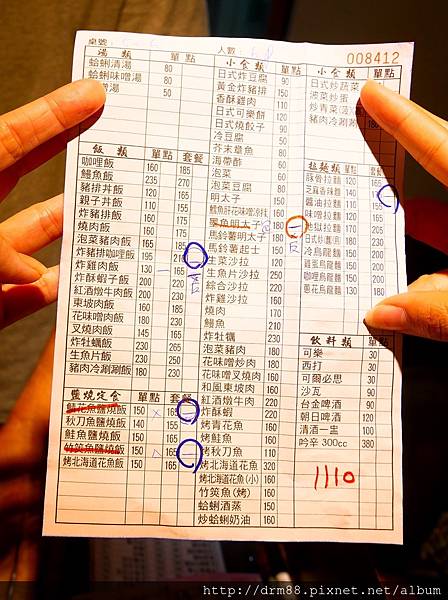 桌號:
人數:
008412
湯類 單點
蛤蜊清湯 80
蛤蜊味噌湯 80
噌湯 50
飯類 單點 套餐
咖哩飯 160 185
鰻魚飯 235 270
豬排丼飯 150 175
親子丼飯 110 135
炸豬排飯 160 185
燒肉飯 150 175
泡菜豬肉飯 150 175
炸豬排咖哩飯 195 210
炸雞肉飯 130 165
炸蝦蝦子飯 220 245
紅酒燉牛肉飯 220 245
東坡肉飯 180
花味噌肉飯 200 230
叉燒肉飯 145
炸牡蠣飯 230 250
生魚片飯 230 250
豬肉冷涮涮飯 180
鹽燒定食 單點 套餐
鯖花魚鹽燒飯 150 165
秋刀魚鹽燒飯 140 155
鮭魚鹽燒飯 150 165
竹筴魚鹽燒飯 150 165
烤北海道花魚飯 150 165
小食類 單點
日式炸豆腐 90
黃金炸豬排 150
香酥雞肉
日式可樂餅
日式燒餃子 90
冷豆腐 50
芥末章魚
海帶酢 60
泡菜
泡菜豆腐
明太子
鱈魚肝花味噌涼拌 160
章魚明太子 180
馬鈴薯明太子 130
馬鈴薯起士 130
生菜沙拉
生魚片沙拉
綜合沙拉 220
炸雞沙拉 160
燒肉 160
鰻魚 230
炸牡蠣 235
泡菜豬肉 160
花味噌炒肉 180
花味噌叉燒肉 180
和風東坡肉 160
紅酒燉牛肉 220
炸酥蝦 220
烤青花魚 160
烤鮭魚 160
烤秋刀魚 150
烤北海花魚 320
烤北海道花魚(小) 160
竹筴魚(烤) 160
蛤蜊酒蒸 150
炒蛤蜊奶油 160
小食類 單點
日式炒蔬菜
泡菜炒蛋
炒青菜
豬肉冷涮涮 180
拉麵類 單點 套餐
豚骨拉麵 120 165
芝麻香辣麵
醬油拉麵 110
味噌拉麵 120 165
地獄拉麵 120 165
日式炒烏龍 110
冷烏龍麵 120
雞蛋烏龍麵 120 165
咖哩烏龍麵 150 185
蔥花烏龍麵 130 180
飲料類 單點
可樂 30
西打 30
可爾必思 30
沙瓦 90
台金啤酒 90
朝日啤酒 120
清酒一壺 100
吟辛 300cc 380
1110
http://drm88.pixnet.net/album